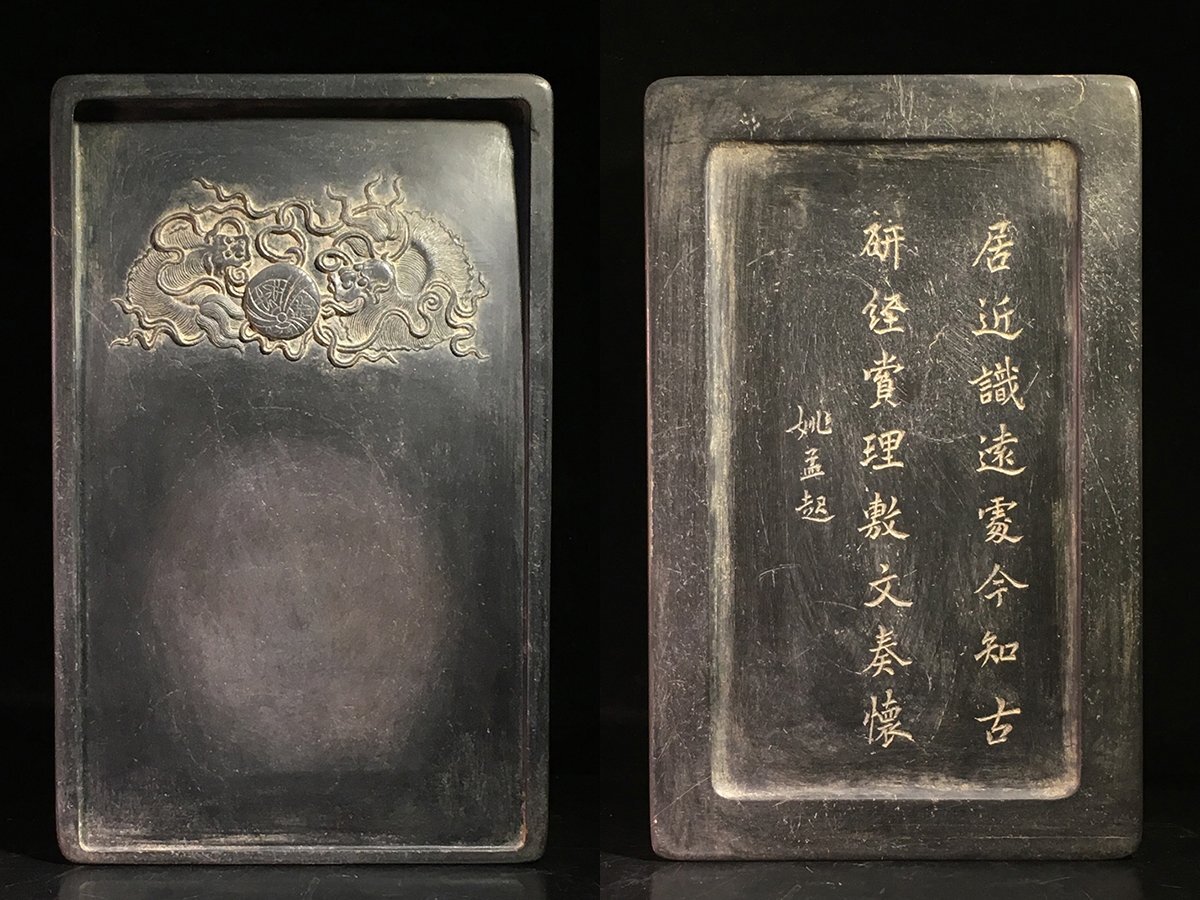 居近識遠處今知古
研經賞理敷文奏懷
姚孟起